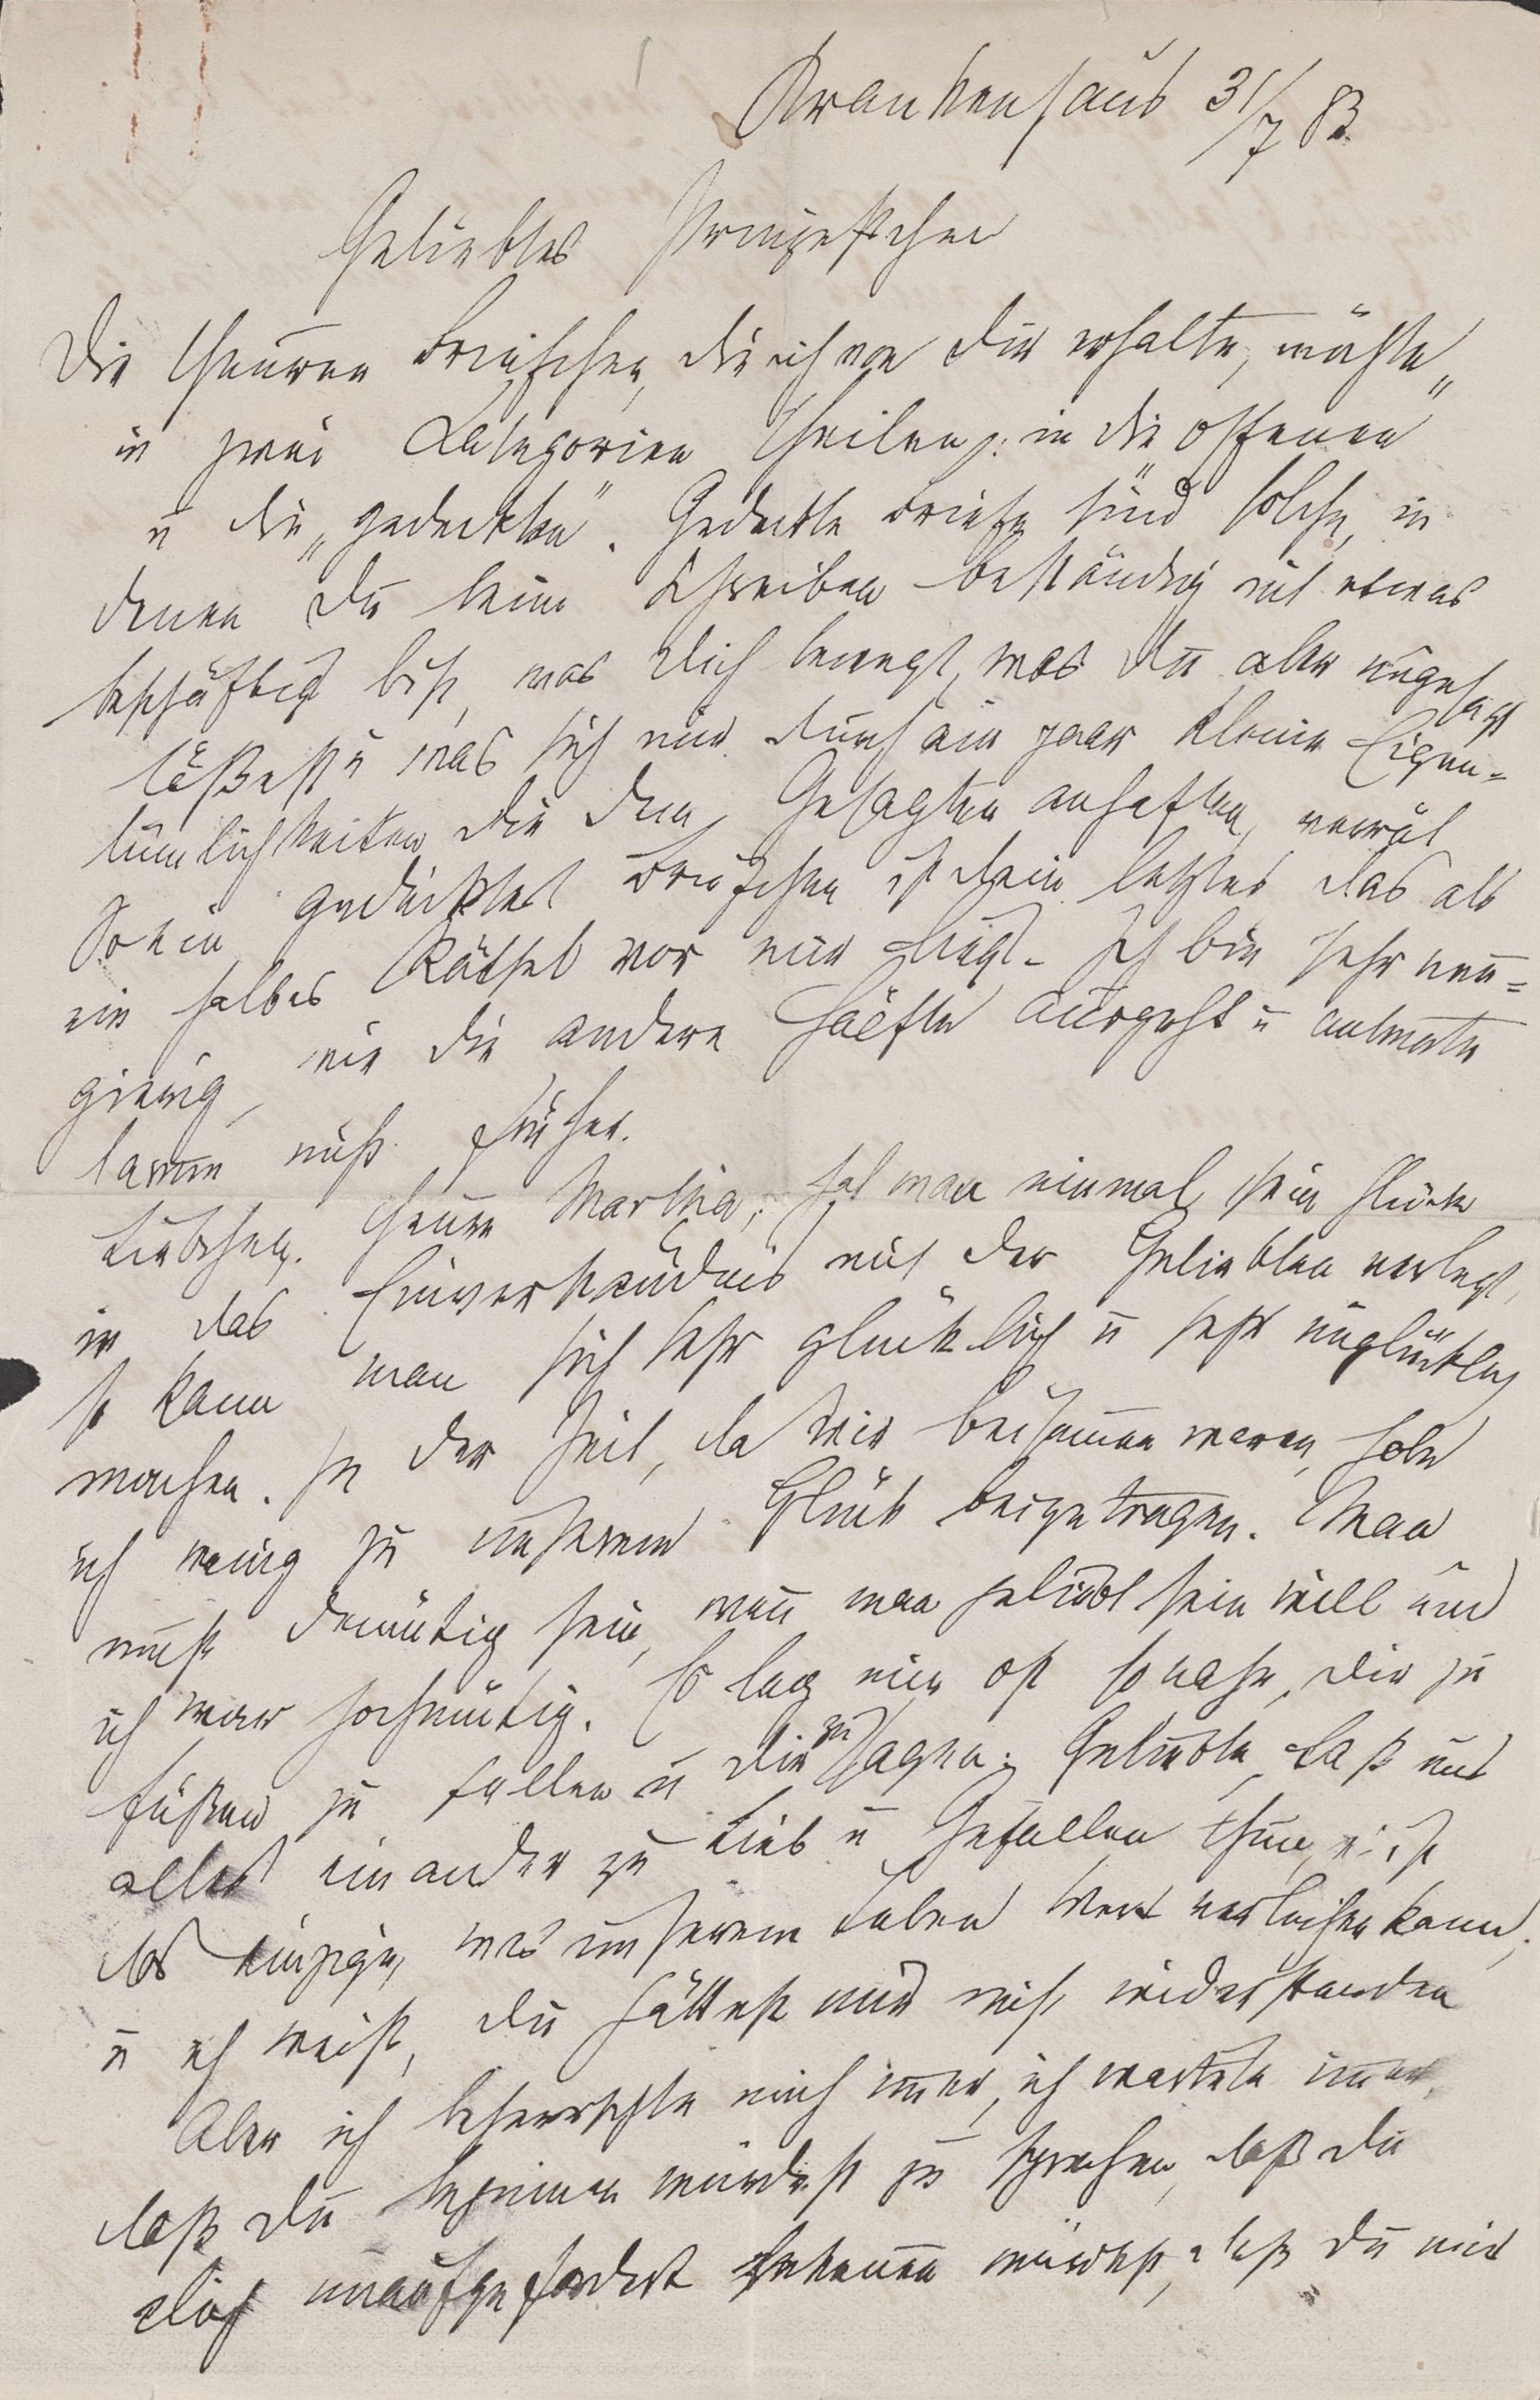 Krankenhaus 31/7 83.
Geliebtes Prinzeßchen
Die theuren Briefchen, die ich von Dir erhalte, möchte
in zwei Kategorien theilen: in die „offenen“
u die „gedeckten“. Gedeckte Briefe sind solche, in
denen Du beim Schreiben beständig mit etwas
beschäftigt bist, was Dich bewegt, was Du aber ungesagt
läßest u was sich nur durch ein paar kleine Eigen-
tümlichkeiten die dem Gesagten anhaften, verrät
So ein gedecktes Briefchen ist dein letztes das als
ein halbes Rätsel vor mir liegt. Ich bin sehr neu-
gierig, wie die andere Hälfte ausgeht u antworte
darum nicht früher.
Liebchen. theure Martha, hat man einmal sein Glück
in das Einverständnis mit der Geliebten verlegt,
so kann man sich sehr glücklich u sehr unglücklich
machen. In der Zeit, da wir beisamen waren, habe
ich wenig zu unserem Glück beigetragen. Man
muß demütig sein, wenn man geliebt sein will und
ich war hochmütig. Es lag mir oft so nahe, dir zu
Füßen zu fallen u dir zu sagen: Geliebte, laß uns
alles einander zu Lieb u Gefallen thun, es ist
das einzige, was unserem Leben Wert verleihen kann,
u ich weiß, du hättest mir nicht widerstanden
Aber ich beherrschte mich imer, ich wartete imer,
daß du beginen würdest zu sprechen, daß Du
dich unaufgefordert bekenen würdest, daß Du mir